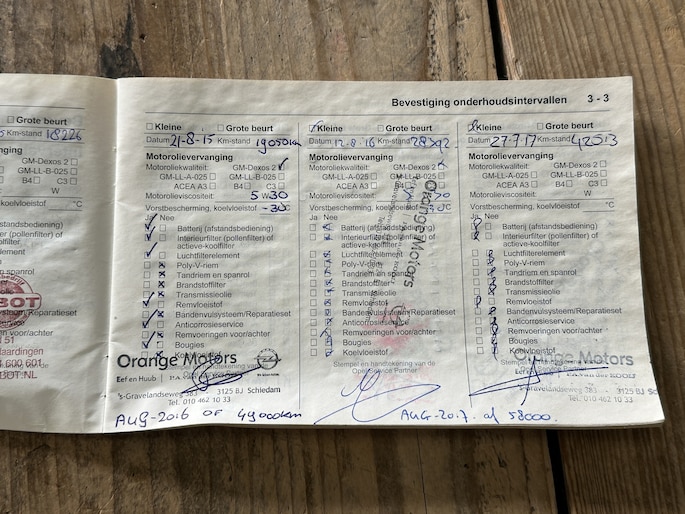 Grote beurt
15 Km-stand 18226
vanging
GM-Dexos 2
GM-LL-B-025
B4 C3
W
°C
(afstandsbediening)
(pollenfilter) of
51
BOT.NL
Bevestiging onderhoudsintervallen 3 - 3
Kleine Grote beurt
Datum 21-8-15 Km-stand 19050km
Motorolievervanging
Motoroliekwaliteit: GM-Dexos 2
GM-LL-A-025 GM-LL-B-025
ACEA A3 B4 C3
Motorolieviscositeit: 5 W30
Vorstbescherming, koelvloeistof -30°C
Ja Nee
Batterij (afstandsbediening)
Interieurfilter (pollenfilter) of
actieve-koolfilter
Luchtfilterelement
Poly-V-riem
Tandriem en spanrol
Brandstoffilter
Transmissieolie
Remvloeistof
Bandenvulsysteem/Reparatieset
Anticorrosieservice
Remvoeringen voor/achter
Bougies
Koelvloeistof
Orange Motors
Eef en Huub
's-Gravelandseweg 383 - 3125 BJ Schiedam
Tel. 010 462 10 33
AUG-2016 OF 49000km
Kleine Grote beurt
Datum 12-8-16 Km-stand 28392
Motorolievervanging
Motoroliekwaliteit: GM-Dexos 2
GM-LL-A-025 GM-LL-B-025
ACEA A3 B4 C3
Motorolieviscositeit:
Vorstbescherming, koelvloeistof
Ja Nee
Batterij (afstandsbediening)
Interieurfilter (pollenfilter) of
actieve-koolfilter
Luchtfilterelement
Poly-V-riem
Tandriem en spanrol
Brandstoffilter
Transmissieolie
Remvloeistof
Bandenvulsysteem/Reparatieset
Anticorrosieservice
Remvoeringen voor/achter
Bougies
Koelvloeistof
Stempel en handtekening van de
Opel Service Partner
Orange Motors
AUG-2017 of 58000.
Kleine Grote beurt
Datum 27-7-17 Km-stand 42513
Motorolievervanging
Motoroliekwaliteit: GM-Dexos 2
GM-LL-A-025 GM-LL-B-025
ACEA A3 B4 C3
Motorolieviscositeit: W
Vorstbescherming, koelvloeistof °C
Ja Nee
Batterij (afstandsbediening)
Interieurfilter (pollenfilter) of
actieve-koolfilter
Luchtfilterelement
Poly-V-riem
Tandriem en spanrol
Brandstoffilter
Transmissieolie
Remvloeistof
Bandenvulsysteem/Reparatieset
Anticorrosieservice
Remvoeringen voor/achter
Bougies
Koelvloeistof
Orange Motors
Eef en Huub P.A. van der KOOIJ
's-Gravelandseweg 383 - 3125 BJ Schiedam
Tel. 010 462 10 33